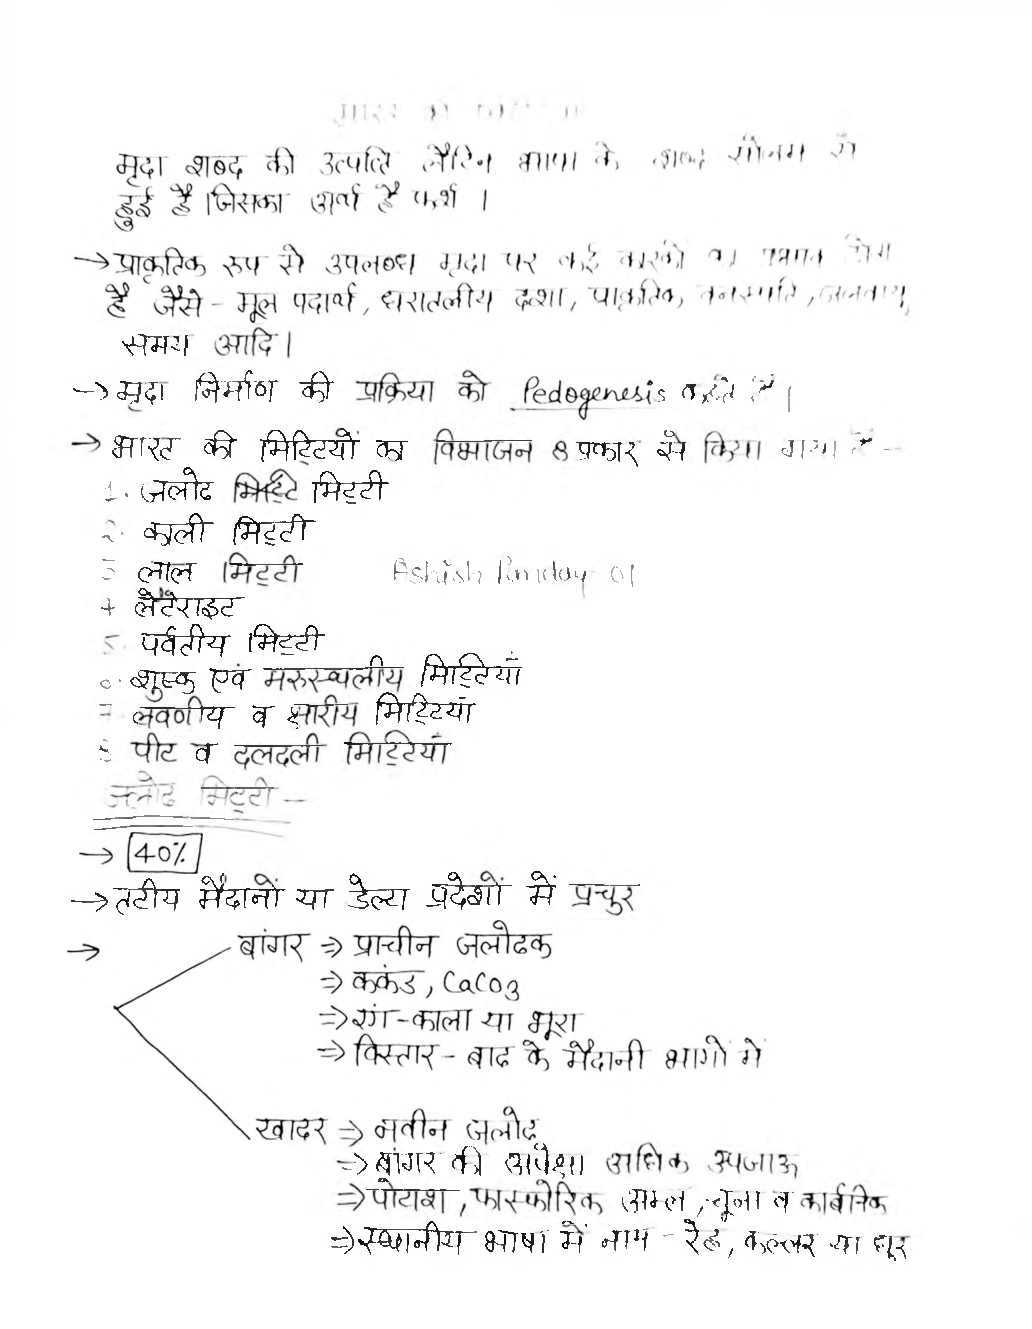 मृदा शब्द की उत्पत्ति लैटिन भाषा के शब्द सोलम से
हुई है जिसका अर्थ है फर्श ।
→ प्राकृतिक रुप से उपलब्ध मृदा पर कई कारकों का प्रभाव होता
है जैसे - मूल पदार्थ, धरातलीय दशा, प्राकृतिक, वनस्पति, जलवायु,
समय आदि ।
→ मृदा निर्माण की प्रक्रिया को Pedogenesis कहते हैं ।
→ भारत की मिट्टियों का विभाजन 8 प्रकार से किया गया है -
1. जलोढ मिट्टि मिट्टी
2. काली मिट्टी
3 लाल मिट्टी
Ashish Panday-01
4 लैटेराइट
5. पर्वतीय मिट्टी
6. शुष्क एवं मरुस्थलीय मिट्टियाँ
7 लवणीय व क्षारीय मिट्टियाँ
8 पीट व दलदली मिट्टियाँ
जलोढ मिट्टी -
→ 40%
→ तटीय मैदानों या डेल्टा प्रदेशों में प्रचुर
→ बांगर ⇒ प्राचीन जलोढक
⇒ ककंड, CaCO3
⇒ रंग - काला या भूरा
⇒ विस्तार - बाढ के मैदानी भागों में
खादर ⇒ नवीन जलोढ
⇒ बांगर की अपेक्षा अधिक उपजाऊ
⇒ पोटाश, फास्फोरिक अम्ल, चूना व कार्बनिक
⇒ स्थानीय भाषा में नाम - रेह, कल्लर या धूर